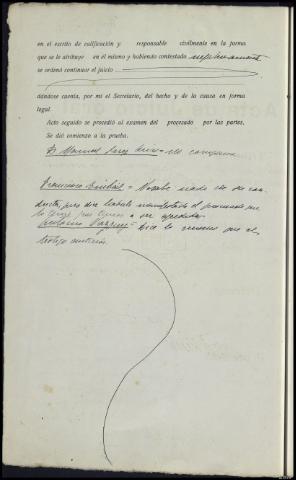 en el escrito de calificación y responsable civilmente en la forma
que se le atribuye en el mismo y habiendo contestado negativamente
se ordenó continuar el juicio
dándose cuenta, por mí el Secretario, del hecho y de la causa en forma
legal.
Acto seguido se procedió al examen del procesado por las partes.
Se dió comienzo a la prueba.
D. Manuel Perez no compareció
Francisco = No sabe nada de su con-
ducta, pues dice haberle manifestado el procesado que
lo
Antonio Vazquez = Dice lo mismo que el
testigo anterior.